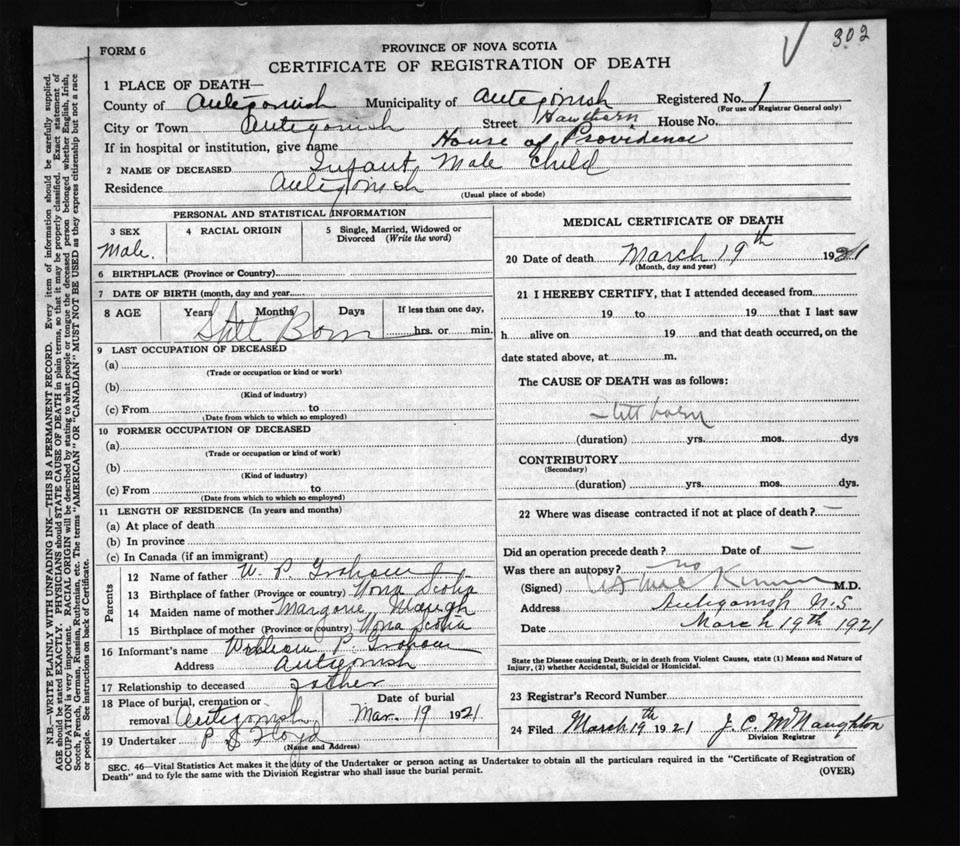 302
FORM 6
PROVINCE OF NOVA SCOTIA
CERTIFICATE OF REGISTRATION OF DEATH
N.B.—WRITE PLAINLY WITH UNFADING INK—THIS IS A PERMANENT RECORD. Every item of information should be carefully supplied.
AGE should be stated EXACTLY. PHYSICIANS should STATE CAUSE OF DEATH in plain terms, so that it may be properly classified. Exact statement of
OCCUPATION is very important. RACIAL ORIGIN will be described by stating to what people or tongue the deceased person belonged whether English, Irish,
Scotch, French, German, Russian, Ruthenian, etc. The terms "AMERICAN" OR "CANADIAN" MUST NOT BE USED as they express citizenship but not a race
or people. See instructions on back of Certificate.
1 PLACE OF DEATH—
County of Antigonish Municipality of Antigonish Registered No. 1
(For use of Registrar General only)
City or Town Antigonish Street Hawthorn House No.
If in hospital or institution, give name House of Providence
2 NAME OF DECEASED Infant Male Child
Residence Antigonish
(Usual place of abode)
PERSONAL AND STATISTICAL INFORMATION
3 SEX 4 RACIAL ORIGIN 5 Single, Married, Widowed or
Divorced (Write the word)
Male.
6 BIRTHPLACE (Province or Country)
7 DATE OF BIRTH (month, day and year
8 AGE Years Months Days If less than one day,
Still Born hrs. or min.
9 LAST OCCUPATION OF DECEASED
(a)
(Trade or occupation or kind or work)
(b)
(Kind of industry)
(c) From to
(Date from which to which so employed)
10 FORMER OCCUPATION OF DECEASED
(a)
(Trade or occupation or kind of work)
(b)
(Kind of industry)
(c) From to
(Date from which to which so employed)
11 LENGTH OF RESIDENCE (In years and months)
(a) At place of death
(b) In province
(c) In Canada (if an immigrant)
Parents
12 Name of father W. P. Graham
13 Birthplace of father (Province or country) Nova Scotia
14 Maiden name of mother Margorie
15 Birthplace of mother (Province or country) Nova Scotia
16 Informant's name William P. Graham
Address Antigonish
17 Relationship to deceased Father
18 Place of burial, cremation or Date of burial
removal Antigonish Mar. 19 1921
19 Undertaker P S Floyd
(Name and Address)
MEDICAL CERTIFICATE OF DEATH
20 Date of death March 19th 1921
(Month, day and year)
21 I HEREBY CERTIFY, that I attended deceased from
19 to 19 that I last saw
h alive on 19 and that death occurred, on the
date stated above, at m.
The CAUSE OF DEATH was as follows:
Still born
(duration) yrs. mos. dys
CONTRIBUTORY
(Secondary)
(duration) yrs. mos. dys.
22 Where was disease contracted if not at place of death? —
Did an operation precede death? Date of —
Was there an autopsy? no
(Signed) M.D.
Address Antigonish N.S
Date March 19th 1921
State the Disease causing Death, or in death from Violent Causes, state (1) Means and Nature of
Injury, (2) whether Accidental, Suicidal or Homicidal.
23 Registrar's Record Number
24 Filed March 19th 1921 J. C. McNaughton
Division Registrar
SEC. 46—Vital Statistics Act makes it the duty of the Undertaker or person acting as Undertaker to obtain all the particulars required in the "Certificate of Registration of
Death" and to fyle the same with the Division Registrar who shall issue the burial permit.
(OVER)